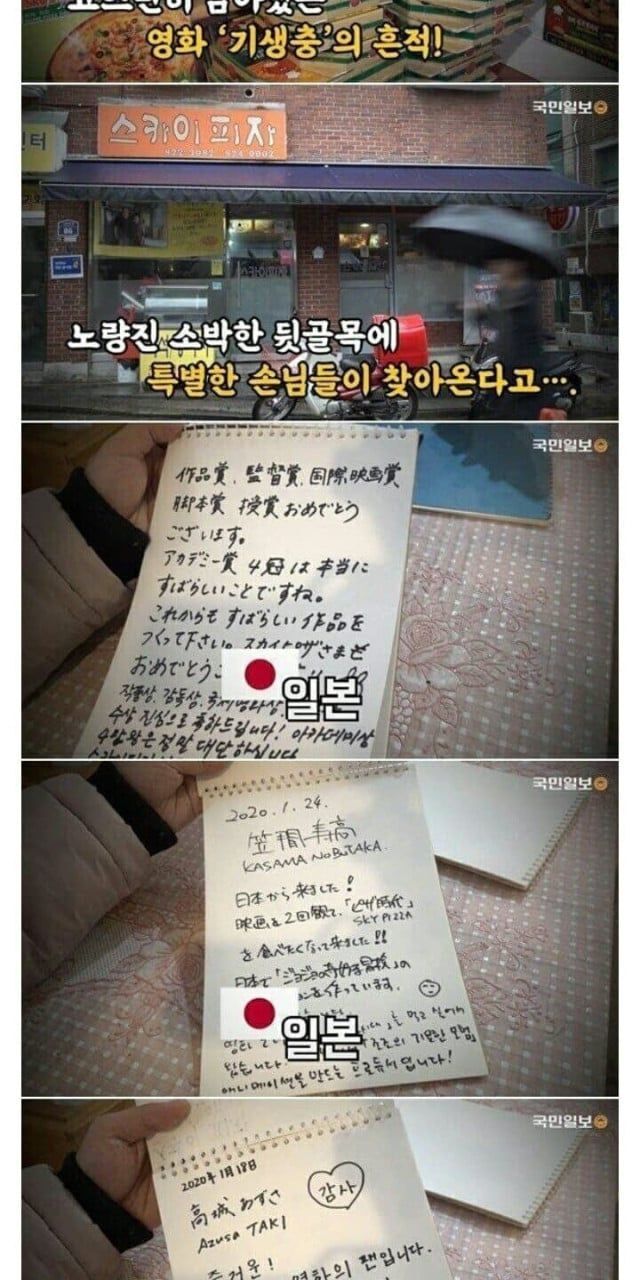 영화 '기생충'의 흔적!
국민일보
스카이피자
822 3082 824 0002
스카이피자
노량진 소박한 뒷골목에
특별한 손님들이 찾아온다고….
국민일보
作品賞、監督賞、国際映画賞
脚本賞 授賞おめでとう
ございます。
アカデミー賞 4冠は本当に
すばらしいことですね。
これからもすばらしい作品を
つくって下さい。スカイピザさまも
おめでとうご
일본
작품상, 감독상, 국제영화상
수상 진심으로 축하드립니다! 아카데미상
4관왕은 정말 대단하십니다
국민일보
2020.1.24.
KASAMA NOBUTAKA.
日本から来ました!
映画を2回観て、「ピザ時代」
SKY PIZZA
を食べたくなって来ました!!
日本で「ジョジョの奇妙な冒険」の
を作っています。
일본
를 먹고 싶어서
죠죠의 기묘한 모험
애니메이션을 만드는 프로듀서입니다!
국민일보
2020年1月18日
高城あずさ
감사
Azusa TAKI
즐거운!
영화의 팬입니다.